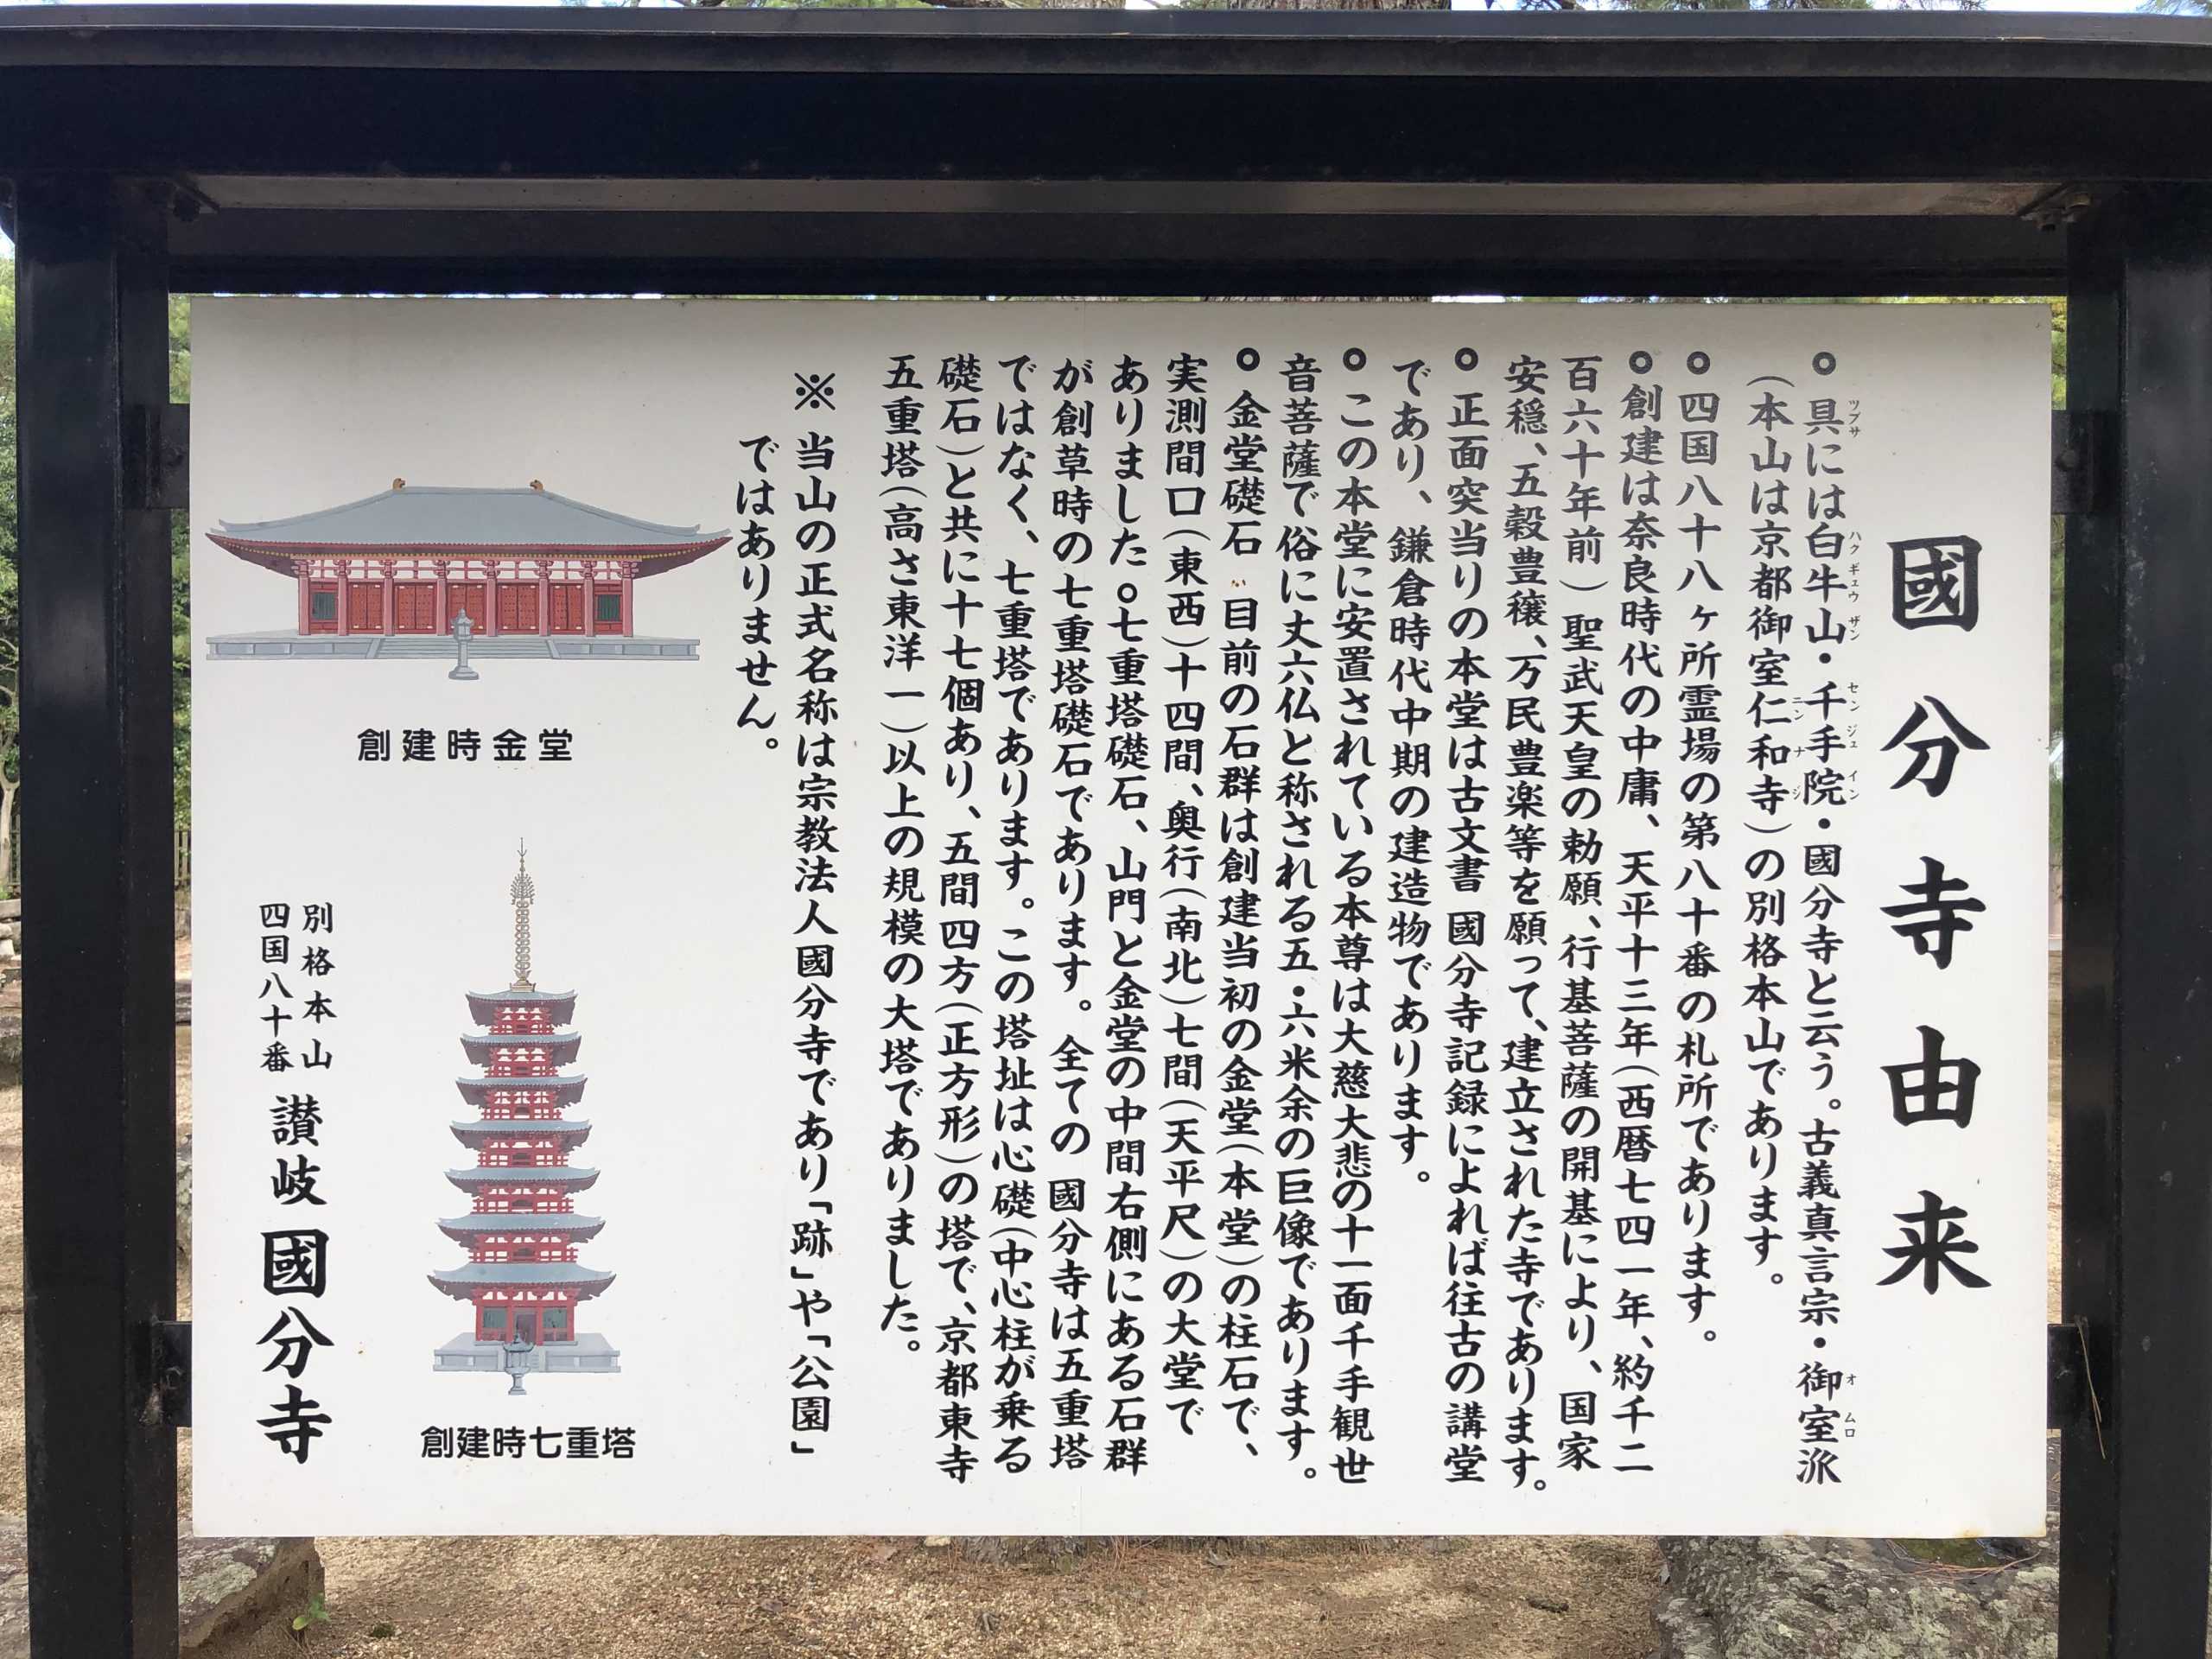 國分寺由来
具には白牛山・千手院・國分寺と云う。古義真言宗・御室派
ツブサ ハクギュウザン センジュイン オムロ
(本山は京都御室仁和寺)の別格本山であります。
ニンナジ
四国八十八ヶ所霊場の第八十番の札所であります。
創建は奈良時代の中庸、天平十三年(西暦七四一年、約千二
百六十年前)聖武天皇の勅願、行基菩薩の開基により、国家
安穏、五穀豊穣、万民豊楽等を願って、建立された寺であります。
正面突当りの本堂は古文書 國分寺記録によれば往古の講堂
であり、鎌倉時代中期の建造物であります。
この本堂に安置されている本尊は大慈大悲の十一面千手観世
音菩薩で俗に丈六仏と称される五・六米余の巨像であります。
金堂礎石 目前の石群は創建当初の金堂(本堂)の柱石で、
実測間口(東西)十四間、奥行(南北)七間(天平尺)の大堂で
ありました。七重塔礎石、山門と金堂の中間右側にある石群
が創草時の七重塔礎石であります。全ての 國分寺は五重塔
ではなく、七重塔であります。この塔址は心礎(中心柱が乗る
礎石)と共に十七個あり、五間四方(正方形)の塔で、京都東寺
五重塔(高さ東洋一)以上の規模の大塔でありました。
※ 当山の正式名称は宗教法人國分寺であり「跡」や「公園」
ではありません。
創建時金堂
創建時七重塔
別格本山
四国八十番
讃岐 國分寺